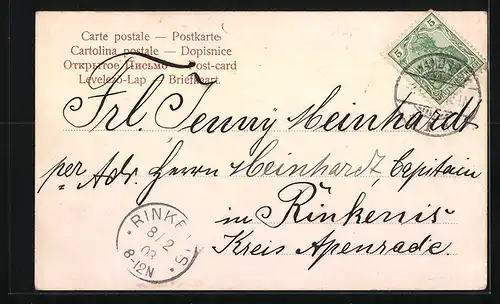 Carte postale — Postkarte
Cartolina postale — Dopisnice
Открытое Письмо — Post-card
Levelező-Lap — Briefkaart.
5 5
Frl. Jenny Meinhardt
per Adr. Herrn Meinhardt, Capitain
in Rinkenis
Kreis Apenrade.
RINKENIS
8/2
03
8-12N